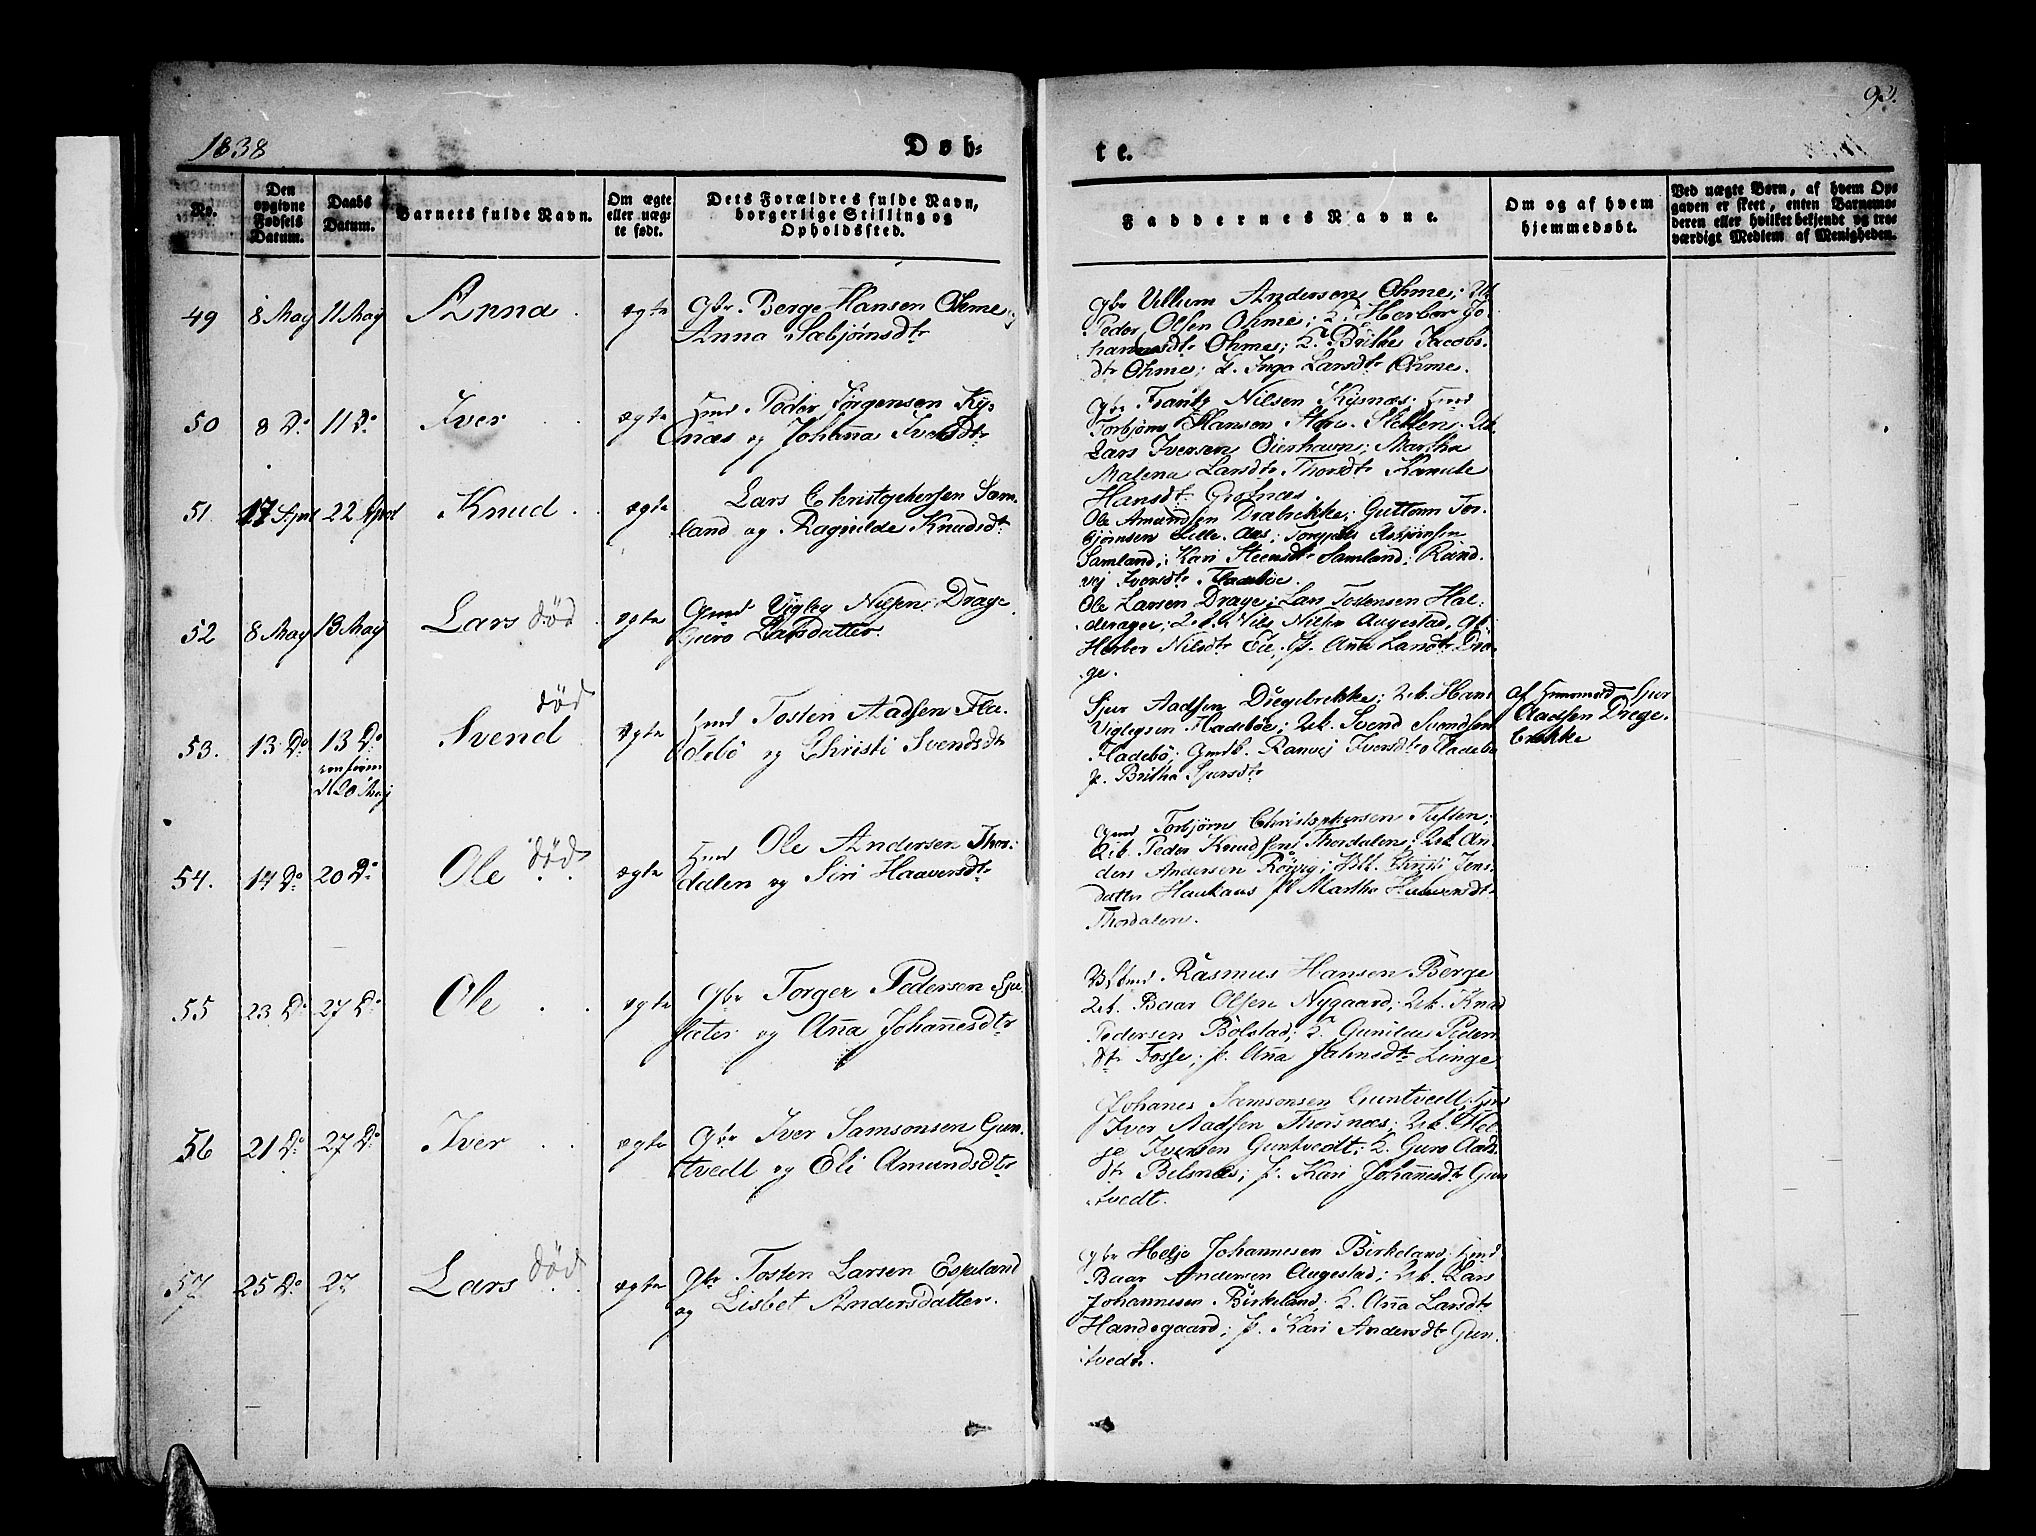 1838
Døb-
te.
93.
No.
Den opgivne Fødsels Datum.
Daabs Datum.
Barnets fulde Navn.
Om ægte eller uægte født.
Dets Forældres fulde Navn, borgerlige Stilling og Opholdssted.
Faddernes Navne.
Om og af hvem hjemmedøbt.
Ved uægte Børn, af hvem Opgaven er skeet, enten Barnemoderen eller hvilket bekjendt og troværdigt Medlem af Menigheden.
49 8 May 11 May Anna ægte Gbr Berge Hansen Ohme og
Anna Sæbjørnsdtr
Gbr Villum Andersen Ohme; Uk
Peder Olsen Ohme; K. Herbor Jo-
hannesdtr Ohme; K. Brithe Jacobs-
dtr Ohme; P. Inga Larsdtr Ohme.
50 8 Do 11 Do Iver ægte Hmd Peder Jørgensen Ky-
snæs og Johanna Iversdtr
Gbr Frantz Nilsen Kysnæs; Hmd
Torbjørn Hansen Store Hetlen; Uk.
Lars Iversen Oierhavn; Martha
Malena Larsdtr
Hansdtr
51 17 April 22 April Knud ægte Lars Christophersen Sam-
land og Ragnilde Knudsdtr
Ole Amundsen Drabrekke; Guttorm Tor-
bjørnsen Lille Aas;
Samland; Kari Steensdtr Samland; Rand-
vej Iversdtr Fladebøe.
52 8 May 13 May Lars død ægte Gmd Vigleg Nilsen Drage
Guro Larsdatter.
Ole Larsen Drage; Lars Tostensen Hal-
derager; Uk. Nils Nilsen Augestad, Gk.
Herbor Nilsdtr Eie; P. Anna Larsdtr Dra-
ge.
53. 13 Do 13 Do Svend død ægte Hmd Tosten Aadsen Fla-
debø og Christi Svendsdtr
confirm
d 20 May
Sjur Aadsen Dregebrekke; Uk. Hans
Viglegsen Fladebøe; Uk. Svend Svendsen
Fladebø; Gmdk. Ranvej Iversdtr Fladebø
P. Britha Sjursdtr
Af Huusmand Sjur
Aadsen Drege-
brekke
54. 14 Do 20 Do Ole død ægte Hmd Ole Andersen Thor-
dalen og Siri Haaversdtr
Gmd Torbjørn Christophersen Tuften;
Uk. Peder Knudsen Thordalen; Uk. An-
ders Andersen Røyrvig; Christi Jens-
datter Haukaas P. Martha
Thordalen.
55 23 Do 27 Do Ole ægte Gbr Torger Pedersen Sju-
sæter og Anna Johannesdtr
Rasmus Hansen Berge
Uk. Baar Olsen Nygaard; Uk. Knud
Pedersen Bolstad; K. Gunilde Peders-
dtr Fosse; P. Anna Johnsdtr Linge
56 21 Do 27 Do Iver ægte Gbr Iver Samsonsen Gun-
tvedt og Eli Amundsdtr
Johannes Samsonsen Guntvedt; Hmd
Iver Aadsen Thorsnæs; Uk. Hel-
ge Iversen Guntvedt; K. Guro Aads-
dtr Belsnæs; P. Kari Johannesdtr Gun
tvedt.
57 25 Do 27 Lars død ægte Gbr Tosten Larsen Espeland
og Lisbet Andersdatter.
Gbr Helje Johannesen Birkeland; Hmd
Baar Andersen Augestad; Uk. Lars
Johannesen Birkeland; K. Anna Larsdtr
Handegaard; P. Kari Andersdtr Gun-
tvedt.